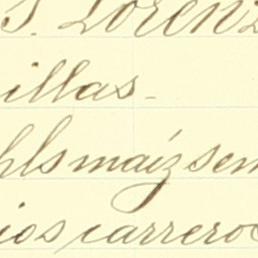 S. Lorenz
illas.
hls maíz sem
ios carrero